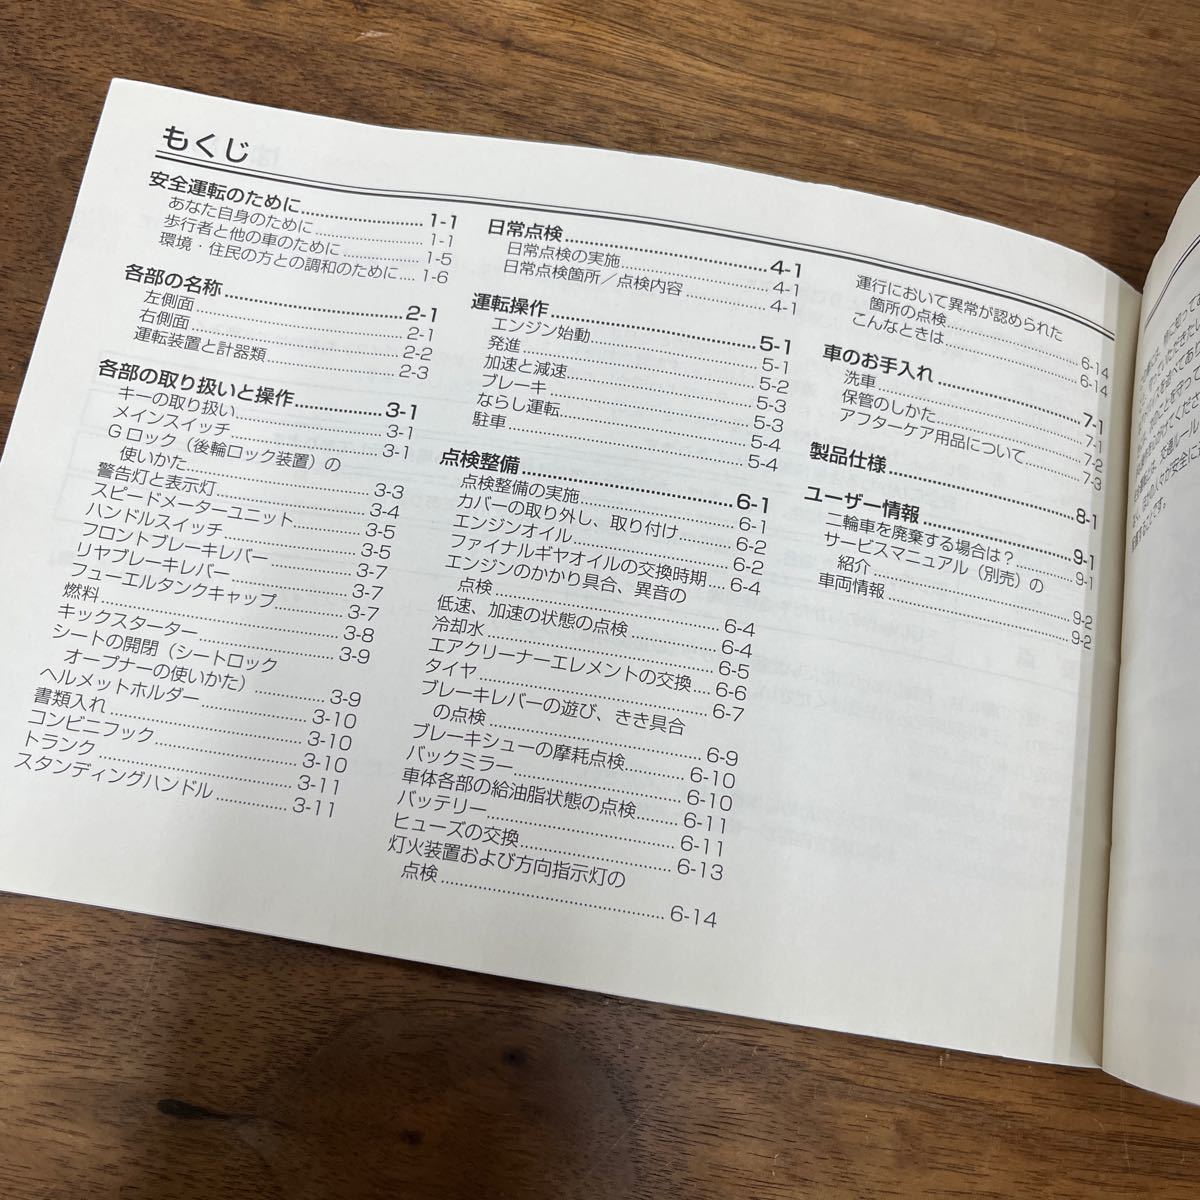 もくじ
安全運転のために 1-1
あなた自身のために 1-1
歩行者と他の車のために 1-5
環境・住民の方との調和のために 1-6
各部の名称 2-1
左側面 2-1
右側面 2-2
運転装置と計器類 2-3
各部の取り扱いと操作 3-1
キーの取り扱い 3-1
メインスイッチ 3-1
Gロック（後輪ロック装置）の
使いかた 3-3
警告灯と表示灯 3-4
スピードメーターユニット 3-5
ハンドルスイッチ 3-5
フロントブレーキレバー 3-7
リヤブレーキレバー 3-7
フューエルタンクキャップ 3-7
燃料 3-8
キックスターター 3-9
シートの開閉（シートロック
オープナーの使いかた） 3-9
ヘルメットホルダー 3-10
書類入れ 3-10
コンビニフック 3-10
トランク 3-11
スタンディングハンドル 3-11
日常点検 4-1
日常点検の実施 4-1
日常点検箇所／点検内容 4-1
運転操作 5-1
エンジン始動 5-1
発進 5-2
加速と減速 5-3
ブレーキ 5-3
ならし運転 5-4
駐車 5-4
点検整備 6-1
点検整備の実施 6-1
カバーの取り外し、取り付け 6-2
エンジンオイル 6-2
ファイナルギヤオイルの交換時期 6-4
エンジンのかかり具合、異音の
点検 6-4
低速、加速の状態の点検 6-4
冷却水 6-5
エアクリーナーエレメントの交換 6-6
タイヤ 6-7
ブレーキレバーの遊び、きき具合
の点検 6-9
ブレーキシューの摩耗点検 6-10
バックミラー 6-10
車体各部の給油脂状態の点検 6-11
バッテリー 6-11
ヒューズの交換 6-13
灯火装置および方向指示灯の
点検 6-14
運行において異常が認められた
箇所の点検 6-14
こんなときは 6-14
車のお手入れ 7-1
洗車 7-1
保管のしかた 7-2
アフターケア用品について 7-3
製品仕様 8-1
ユーザー情報 9-1
二輪車を廃棄する場合は？ 9-1
サービスマニュアル（別売）の
紹介 9-2
車両情報 9-2